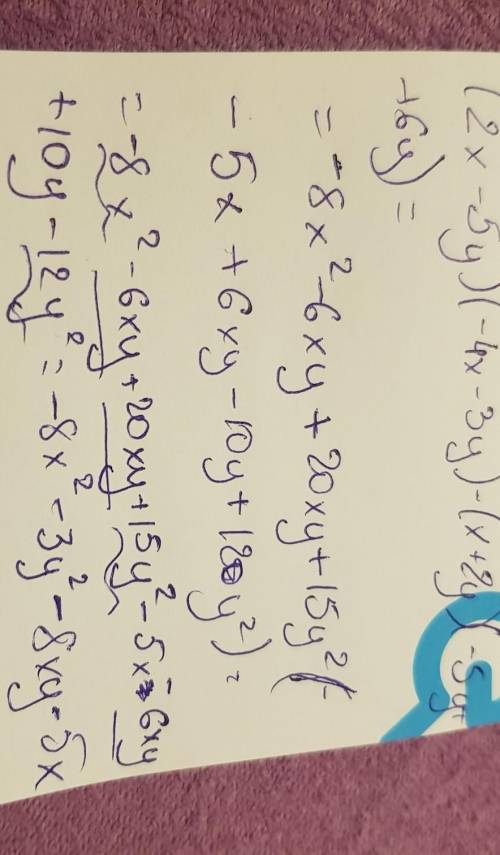 (2x-5y)(-4x-3y)-(x+2y)(-5y+
+6y)=
=-8x²-6xy+20xy+15y²(-
-5x+6xy-10y+12y²)=
=-8x²-6xy+20xy+15y²-5x-6xy
+10y-12y²=-8x²-3y²-8xy-5x